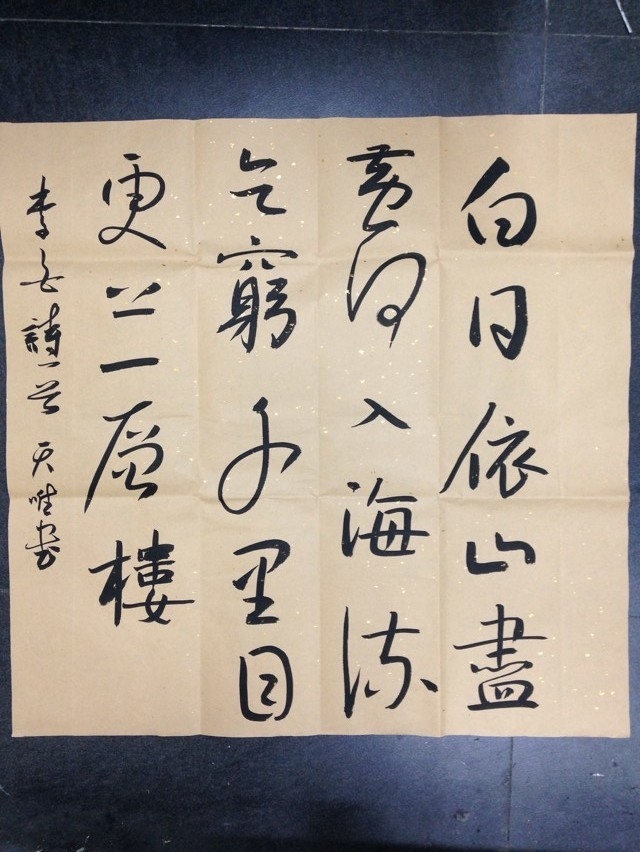 白日依山盡
黄河入海流
欲窮千里目
更上一層樓
李白詩一首 天唯書